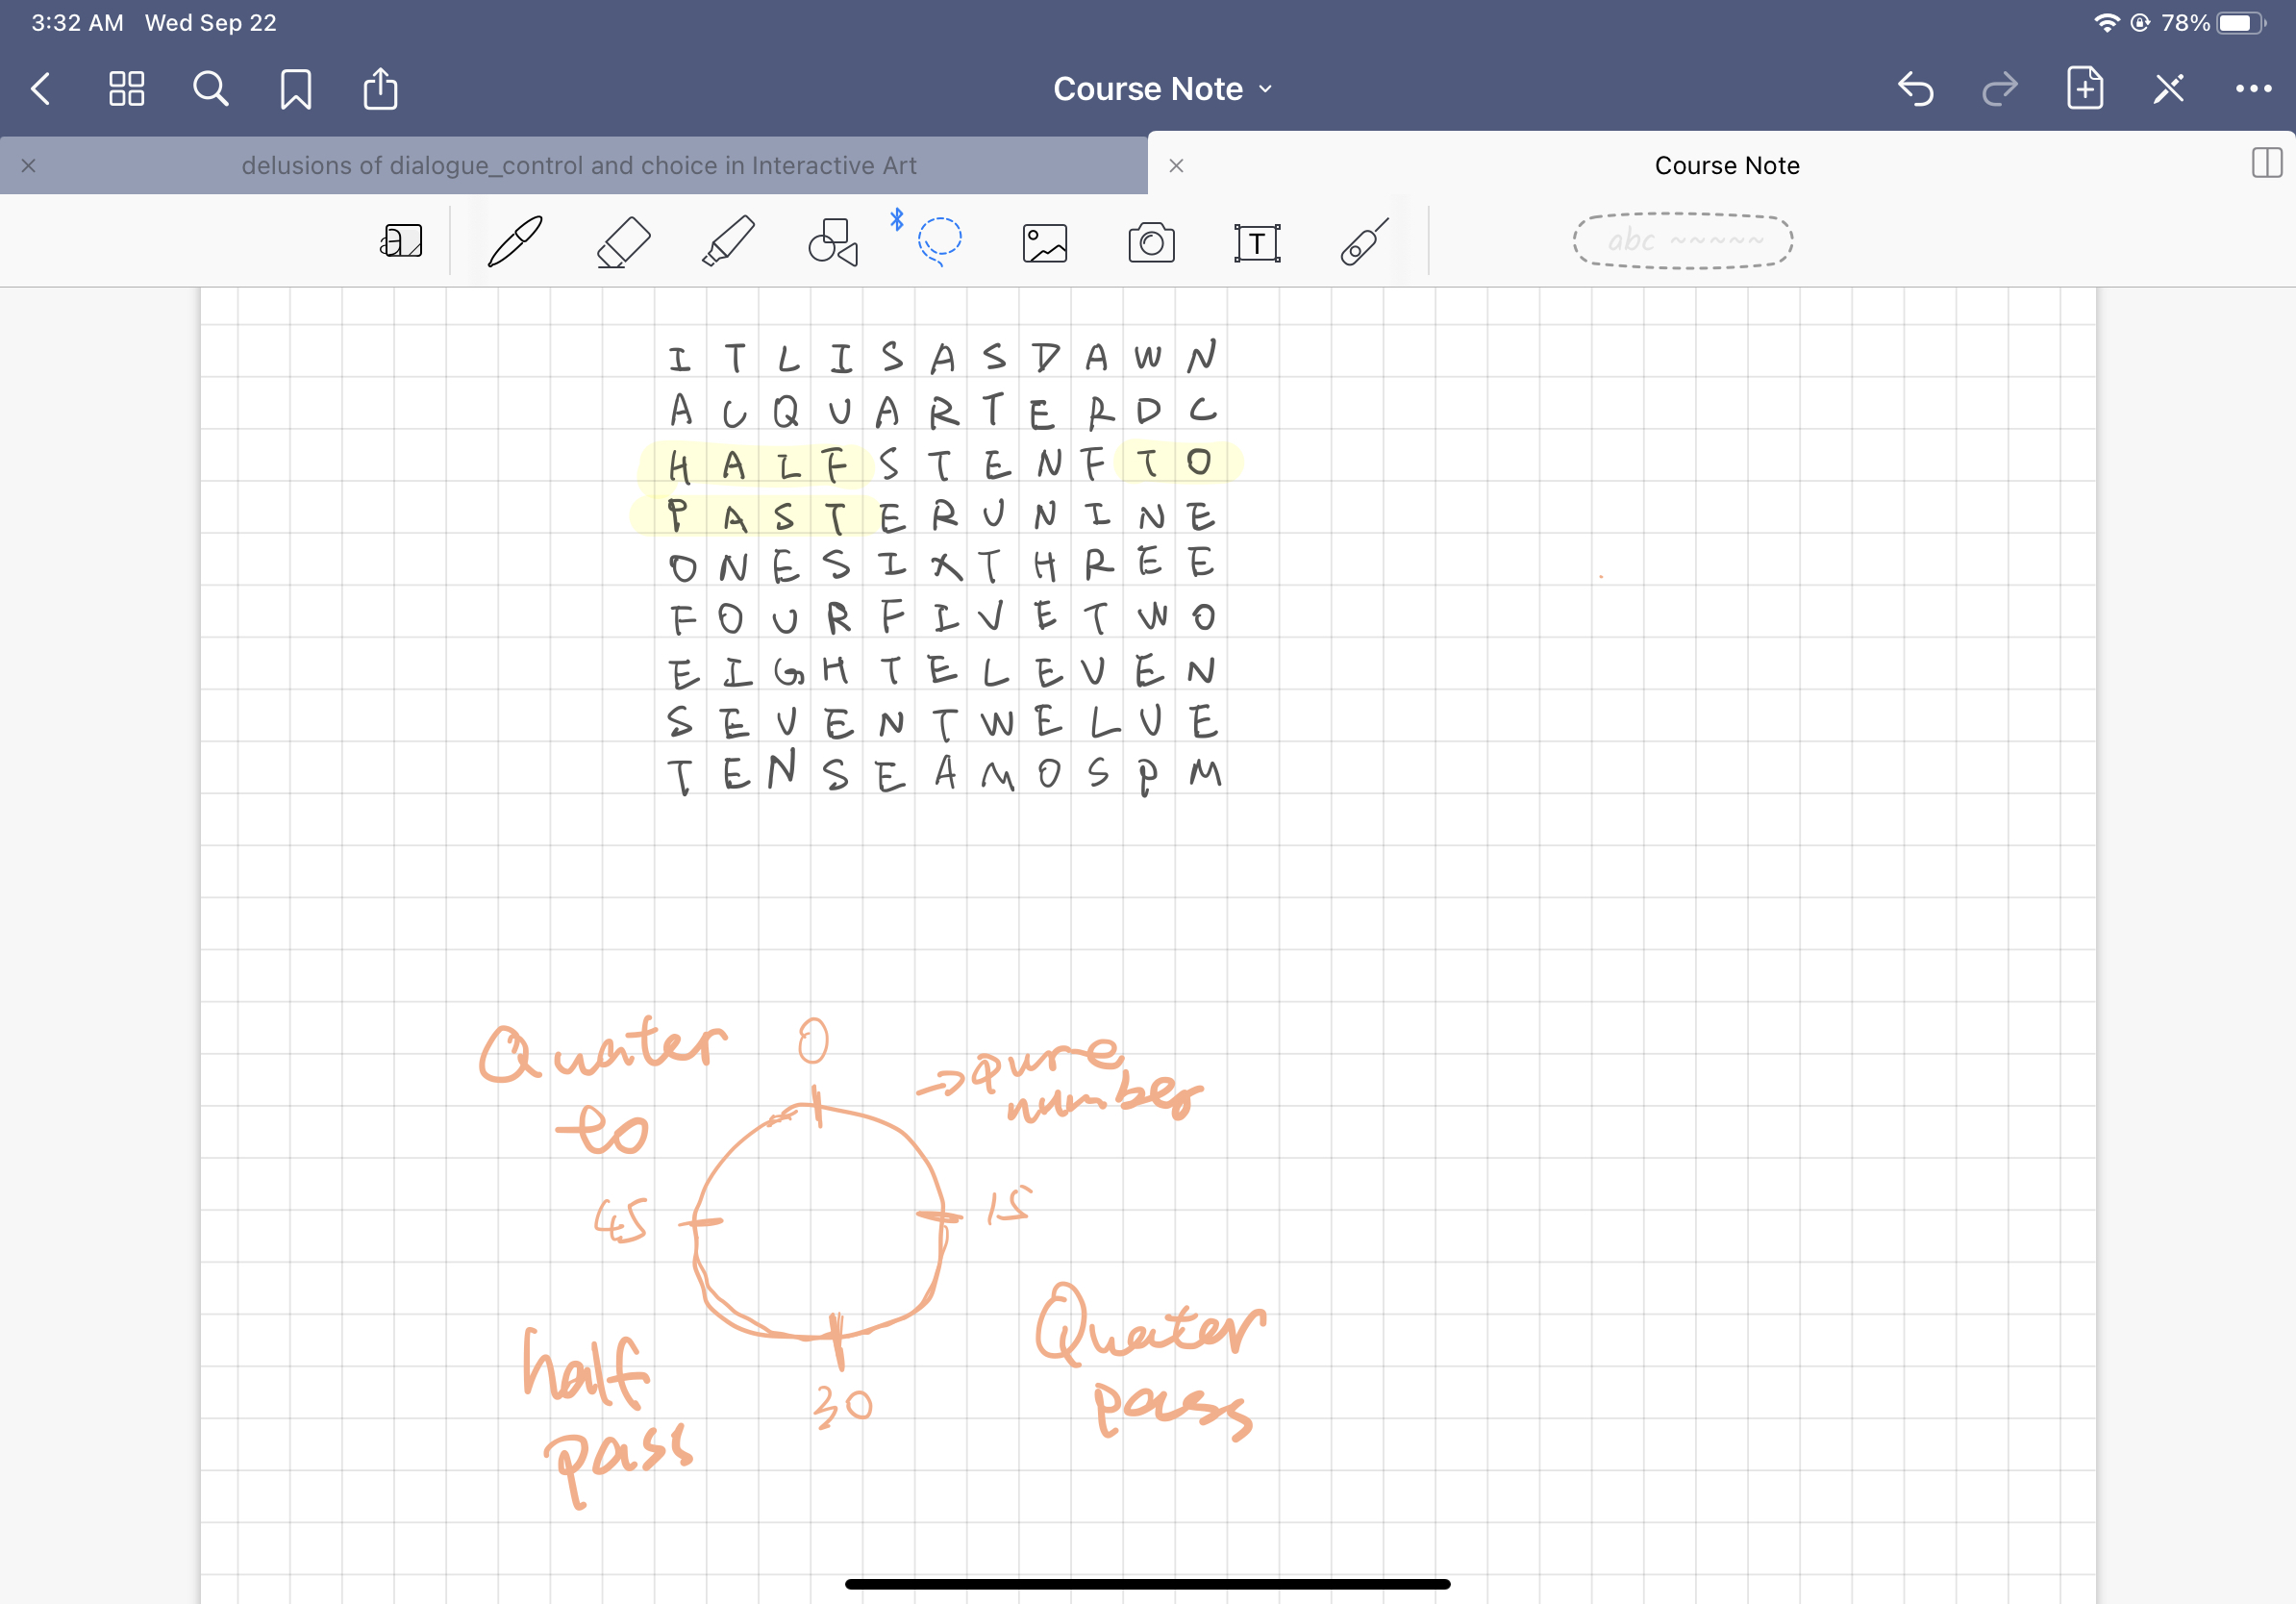 3:32 AM Wed Sep 22
78%
Course Note
delusions of dialogue_control and choice in Interactive Art
Course Note
T
abc
I T L I S A S D A W N
A C Q U A R T E R D C
H A L F S T E N F T O
P A S T E R U N I N E
O N E S I X T H R E E
F O U R F I V E T W O
E I G H T E L E V E N
S E V E N T W E L V E
T E N S E A M O S P M
Quater 0 → pure
number
to
45 15
half 30 Quater
pass pass